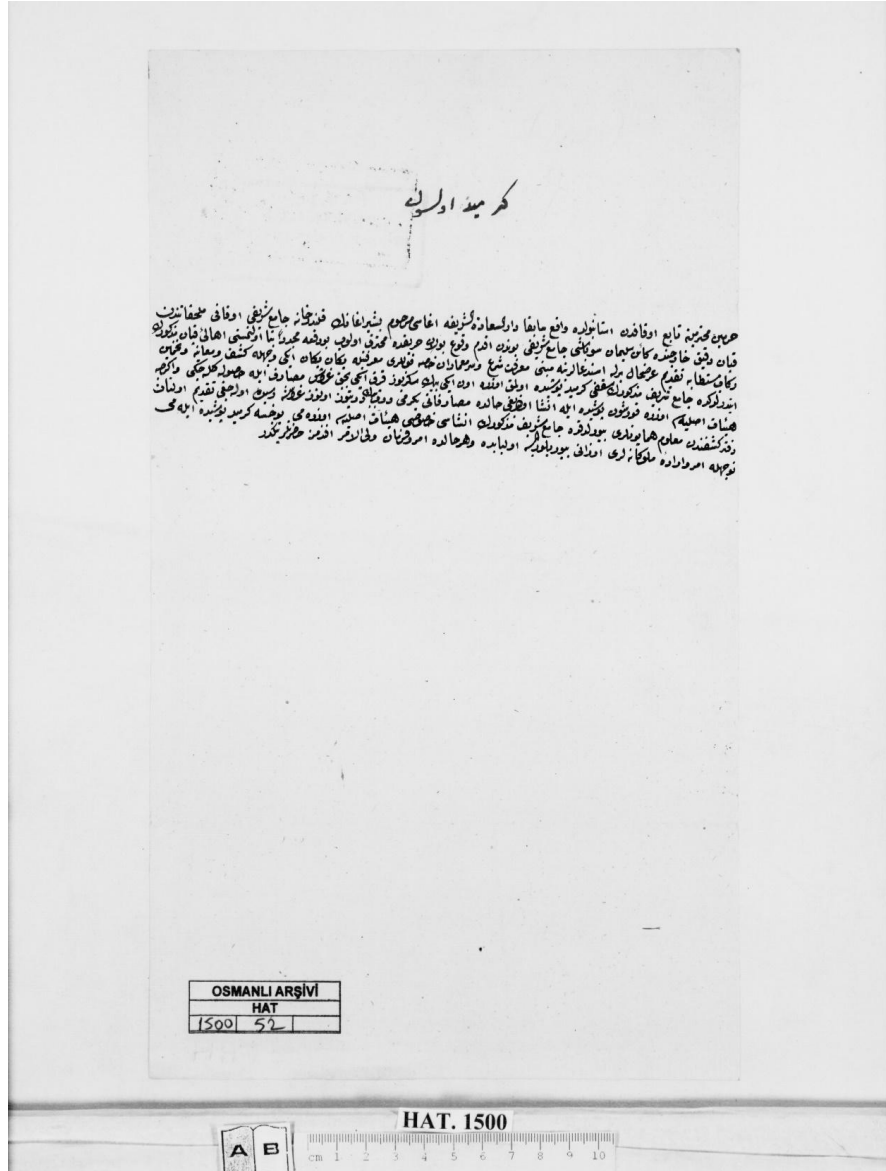 كرميد اولسون
حرمين محترمينه تابع اوقافدن استانبولده واقع سابقا دار السعادة الشريفه اغاسى مرحوم بشير اغانك جامع شريفى اوقافى ملحقاتندن
قپان دقيق خارجنده كائن سليمان سوباشى جامع شريفى بوندن اقدم وقوع بولان حريقده محترق اولوب بودفعه مجددا بنا اولنمسنى اهالئ قپان مذكورك
ركاب مستطابه تقديم عرضحال برله استدعالرينه مبنى معرفت شرع و سرمعماران خاصه قوللرى معرفتيله يكان يكان ايكى وجهله كشف ومعاينه وتخمين
ايتدرلدكده جامع شريف مذكورك سقفى كرميد پوشيده اولمق اوزره اون ايكى بيك سكزيوز قرق ايكى بچق غروش مصارف ايله حصوله كله جكى واكر
هيئات اصليه سى اوزره قورشون پوشيده ايله انشا اولنديغى حالده مصارفاتى يكرمى طقوزيوز اوتوز غروشه اولەجغى تقديم اولنان
دفتر كشفندن معلوم همايونلرى بيورلدقده جامع شريف مذكورك انشاسى خصوصى هيئات اصليه سى اوزره مى يوخسه كرميد پوشيده ايله مى
نوجهله امر واراده ملوكانه لرى ارزانى بيوريلور ايسه اولبابده وهرحالده امر وفرمان ولى الامر افندم حضرتلرينكدر
OSMANLI ARŞİVİ
HAT
1500 52
HAT. 1500
A B
cm 1 2 3 4 5 6 7 8 9 10